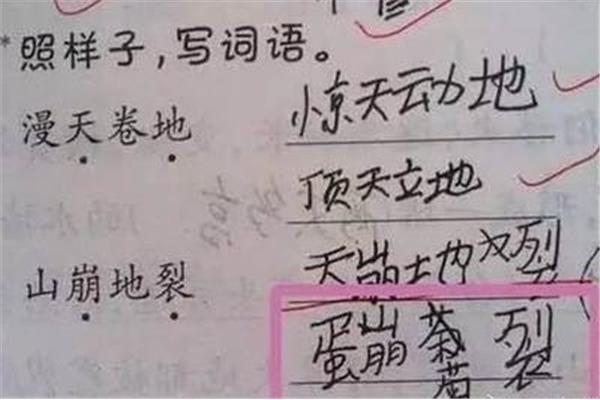 照样子,写词语。
漫天卷地 惊天动地
顶天立地
山崩地裂 天崩地裂
蛋崩菊裂